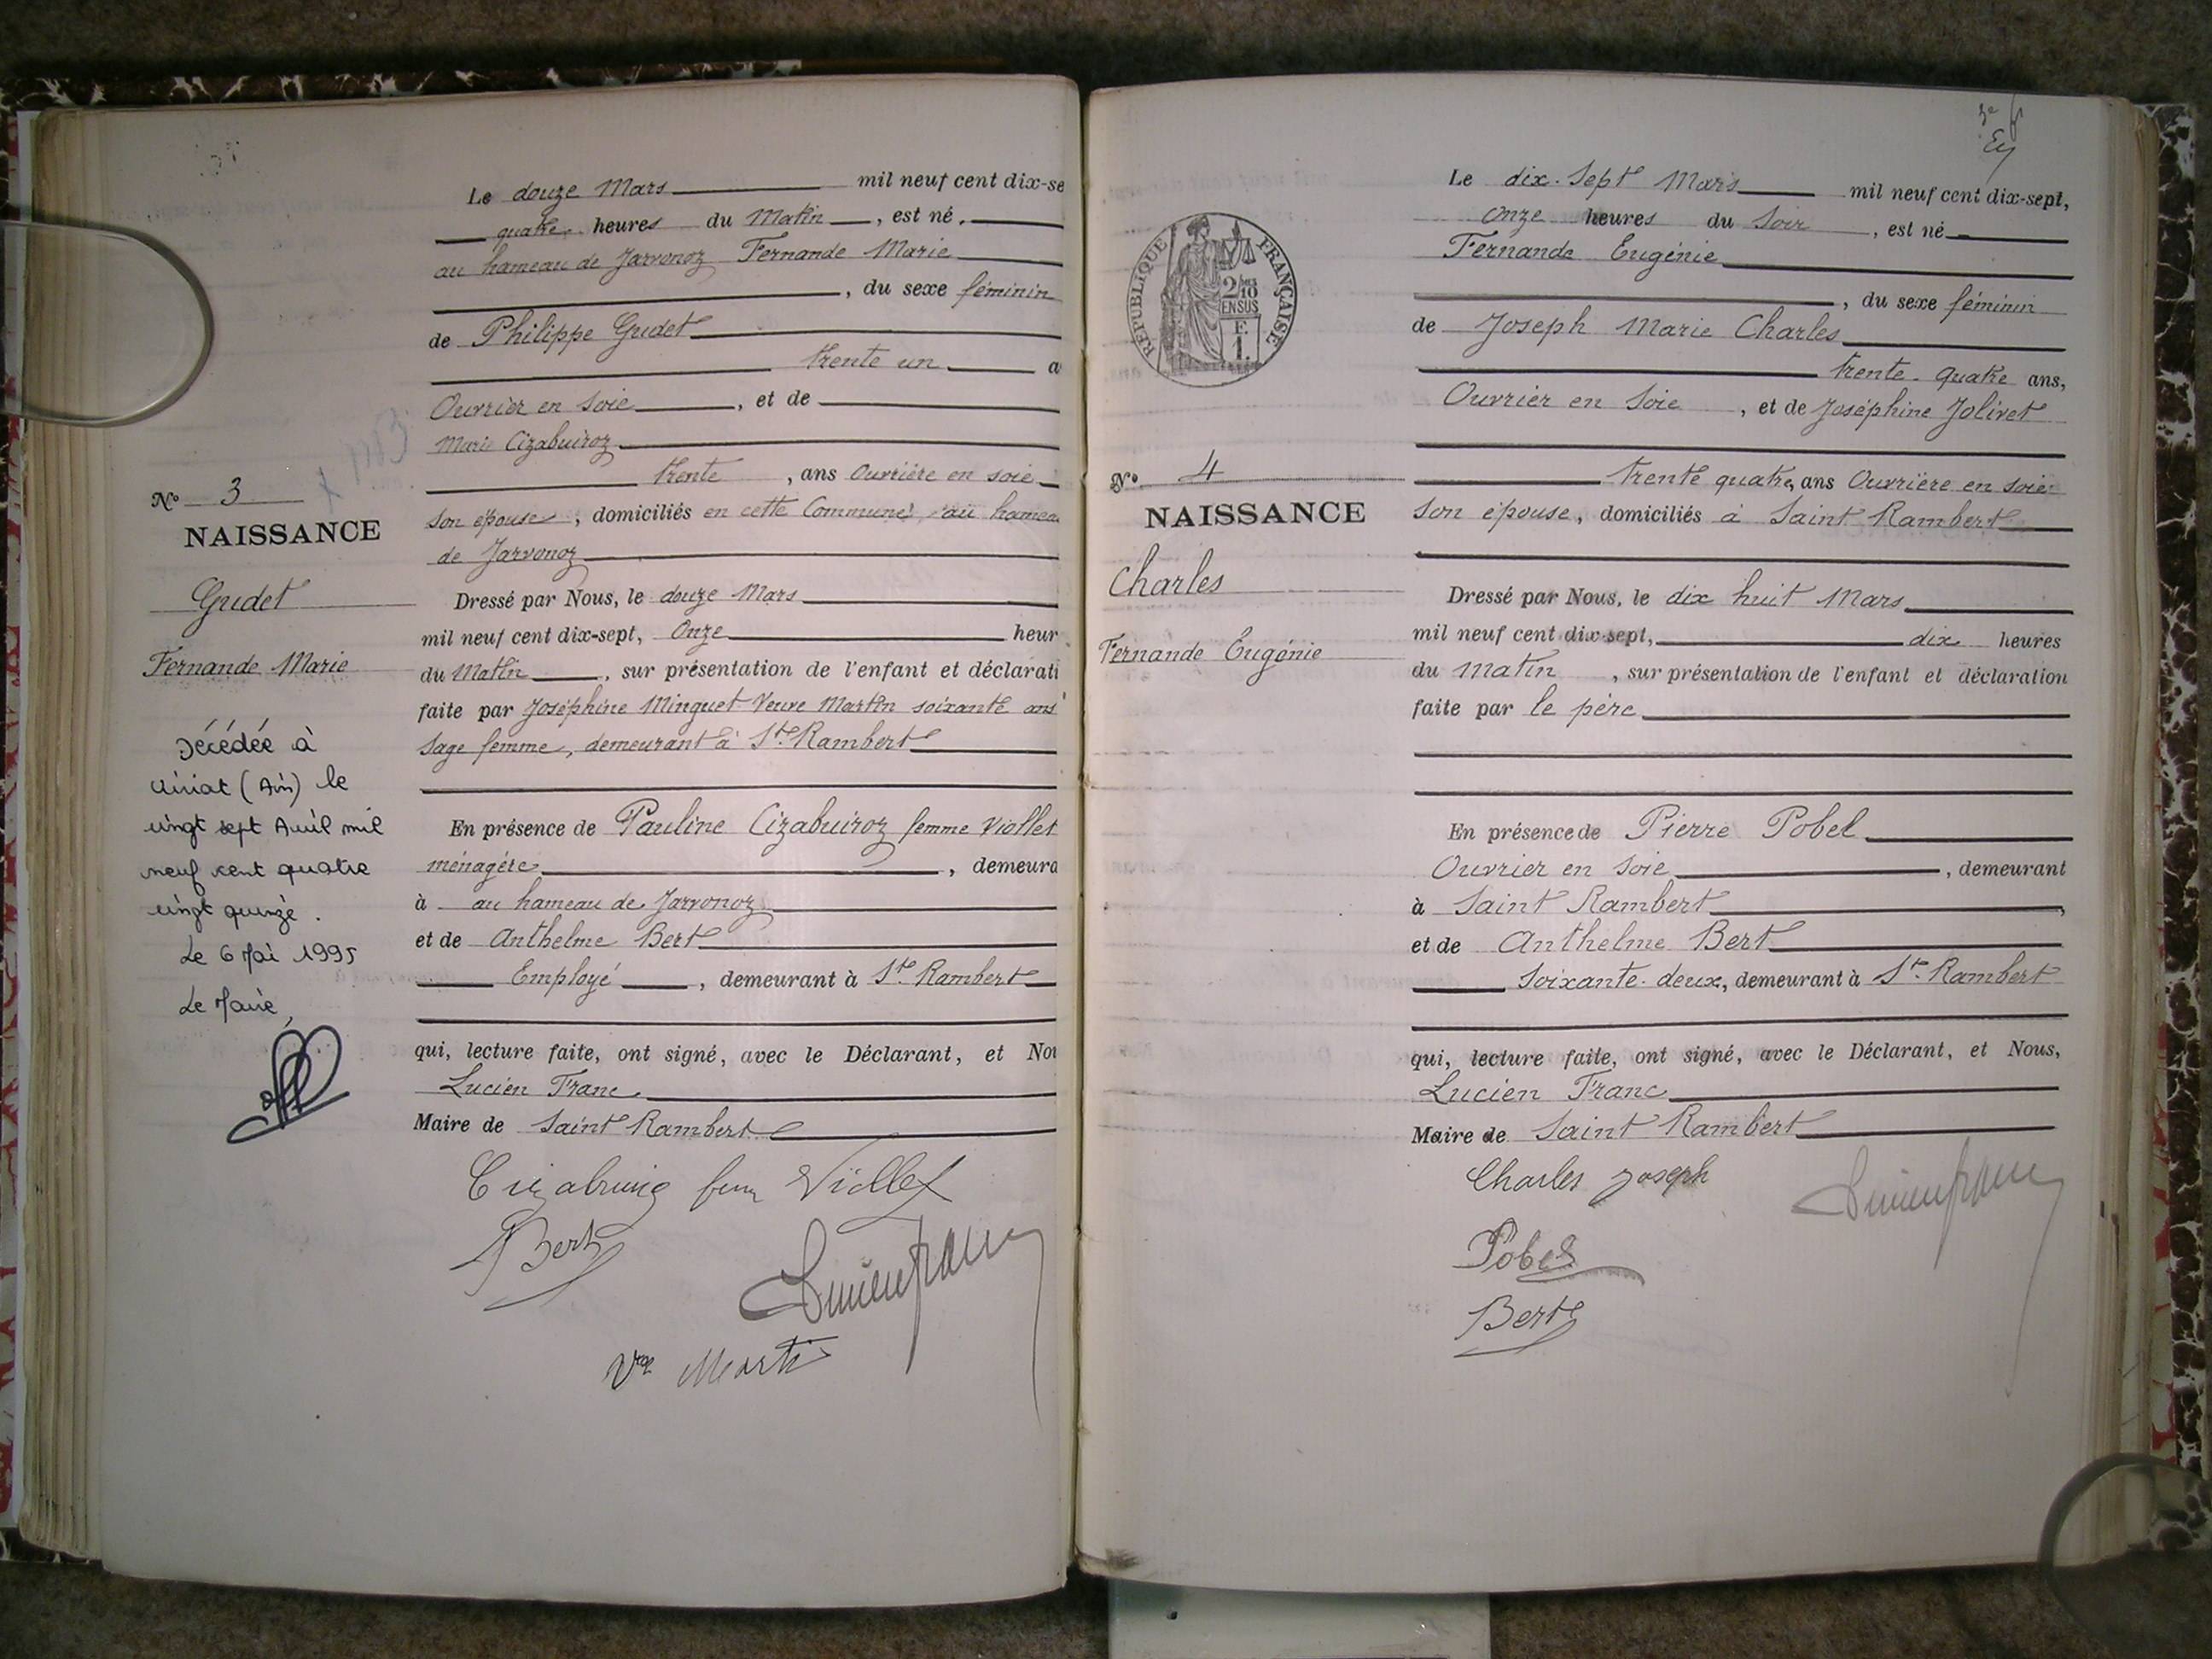 Le douze Mars mil neuf cent dix-se
quatre heures du Matin, est né,
au hameau de Jarvonoz Fernande Marie
, du sexe féminin
de Philippe Gudet
trente un a
Ouvrier en soie, et de
Marie Cizabuiroz
trente, ans Ouvrière en soie
son épouse, domiciliés en cette Commune, au hamea
de Jarvonoz
Dressé par Nous, le douze Mars
mil neuf cent dix-sept, Onze heur
du Matin, sur présentation de l'enfant et déclarati
faite par Joséphine Minguet Veuve Martin soixante ans
Sage femme, demeurant à St. Rambert
En présence de Pauline Cizabuiroz femme Viollet
ménagère, demeura
à au hameau de Jarvonoz
et de Anthelme Bert
Employé, demeurant à St. Rambert
qui, lecture faite, ont signé, avec le Déclarant, et Nou
Lucien Franc
Maire de Saint Rambert
Viollet
ABert
Lucien Franc
Vve Martin
N° 3
NAISSANCE
Gudet
Fernande Marie
Décédée à
Viriat (Ain) le
vingt sept Avril mil
neuf cent quatre
vingt quinze.
Le 6 Mai 1995
Le Maire,
Le dix-Sept Mars mil neuf cent dix-sept,
Onze heures du Soir, est né
Fernande Eugénie
, du sexe féminin
de Joseph Marie Charles
trente-quatre ans,
Ouvrier en Soie, et de Joséphine Jolivet
trente quatre, ans Ouvrière en soie
Son épouse, domiciliés à Saint Rambert
Dressé par Nous, le dix huit Mars
mil neuf cent dix-sept, dix heures
du matin, sur présentation de l'enfant et déclaration
faite par le père
En présence de Pierre Pobel
Ouvrier en Soie, demeurant
à Saint Rambert,
et de Anthelme Bert
Soixante-deux, demeurant à St. Rambert
qui, lecture faite, ont signé, avec le Déclarant, et Nous,
Lucien Franc
Maire de Saint Rambert
Charles Joseph
Lucien Franc
Pobel
Bert
RÉPUBLIQUE FRANÇAISE
2/10
EN SUS
F.
1.
N° 4
NAISSANCE
Charles
Fernande Eugénie